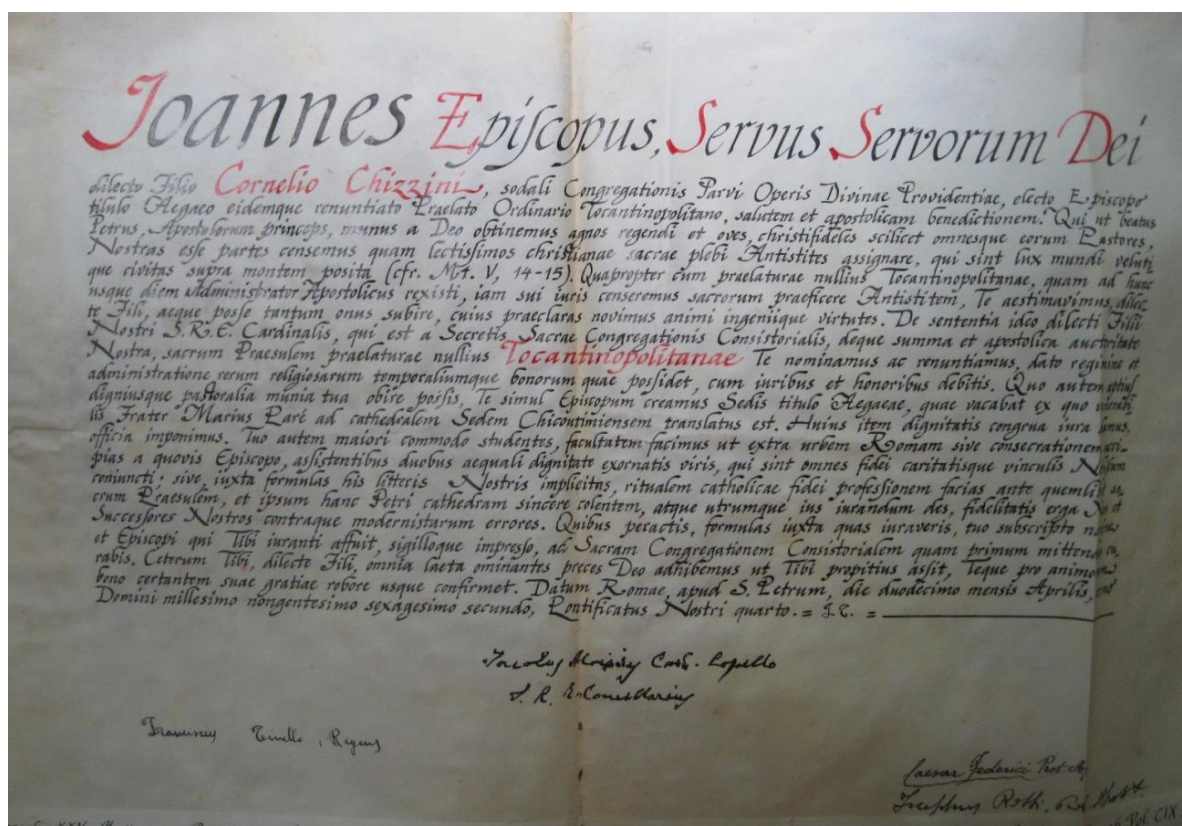 Joannes Episcopus, Servus Servorum Dei
dilecto Filio Cornelio Chizzini, sodali Congregationis Parvi Operis Divinae Providentiae, electo Episcopo
titulo Aegaeo eidemque renuntiato Praelato Ordinario Tocantinopolitano, salutem et apostolicam benedictionem. Qui ut beatus
Petrus, Apostolorum princeps, munus a Deo obtinemus agnos regendi et oves, christifideles scilicet omnesque eorum Pastores,
Nostras esse partes censemus quam lectissimos christianae sacrae plebi Antistites assignare, qui sint lux mundi veluti
que civitas supra montem posita (cfr. Mt. V, 14-15). Quapropter cum praelaturae nullius Tocantinopolitanae, quam ad hunc
usque diem Administrator Apostolicus rexisti, iam sui iuris censeremus sacrorum praeficere Antistitem, Te aestimavimus, dilec
te Fili, aeque posse tantum onus subire, cuius praeclaras novimus animi ingeniique virtutes. De sententia ideo dilecti Filii
Nostri S.R.E. Cardinalis, qui est a Secretis Sacrae Congregationis Consistorialis, deque summa et apostolica auctoritate
Nostra, sacrum Praesulem praelaturae nullius Tocantinopolitanae Te nominamus ac renuntiamus, dato regimine et
administratione rerum religiosarum temporaliumque bonorum quae possidet, cum iuribus et honoribus debitis. Quo autem aptius
digniusque pastoralia munia tua obire possis, Te simul Episcopum creamus Sedis titulo Aegaeae, quae vacabat ex quo
lis Frater Marius Paré ad cathedralem Sedem Chicoutimiensem translatus est. Huius item dignitatis congrua iura
officia imponimus. Tuo autem maiori commodo studentes, facultatem facimus ut extra urbem Romam sive consecrationem
pias a quovis Episcopo, assistentibus duobus aequali dignitate exornatis viris, qui sint omnes fidei caritatisque vinculis
coniuncti; sive iuxta formulas his litteris Nostris implicitas, ritualem catholicae fidei professionem facias ante
crum Praesulem, et ipsum hanc Petri cathedram sincere colentem, atque utrumque ius iurandum des, fidelitatis erga
Successores Nostros contraque modernistarum errores. Quibus peractis, formulas iuxta quas iuraveris, tuo subscripto
et Episcopi qui Tibi iuranti affuit, sigilloque impresso, ad Sacram Congregationem Consistorialem quam primum
rabis. Ceterum Tibi, dilecte Fili, omnia laeta ominantes preces Deo adhibemus ut Tibi propitius assit, Teque pro
bono certantem suae gratiae robore usque confirmet. Datum Romae, apud S. Petrum, die duodecimo mensis Aprilis,
Domini millesimo nongentesimo sexagesimo secundo, Pontificatus Nostri quarto. =
Iacobus Aloisius Card. Copello
S. R. E. Cancellarius
Franciscus Tinello, Regens
Caesar Federici Prot. Ap
Vol. CIX